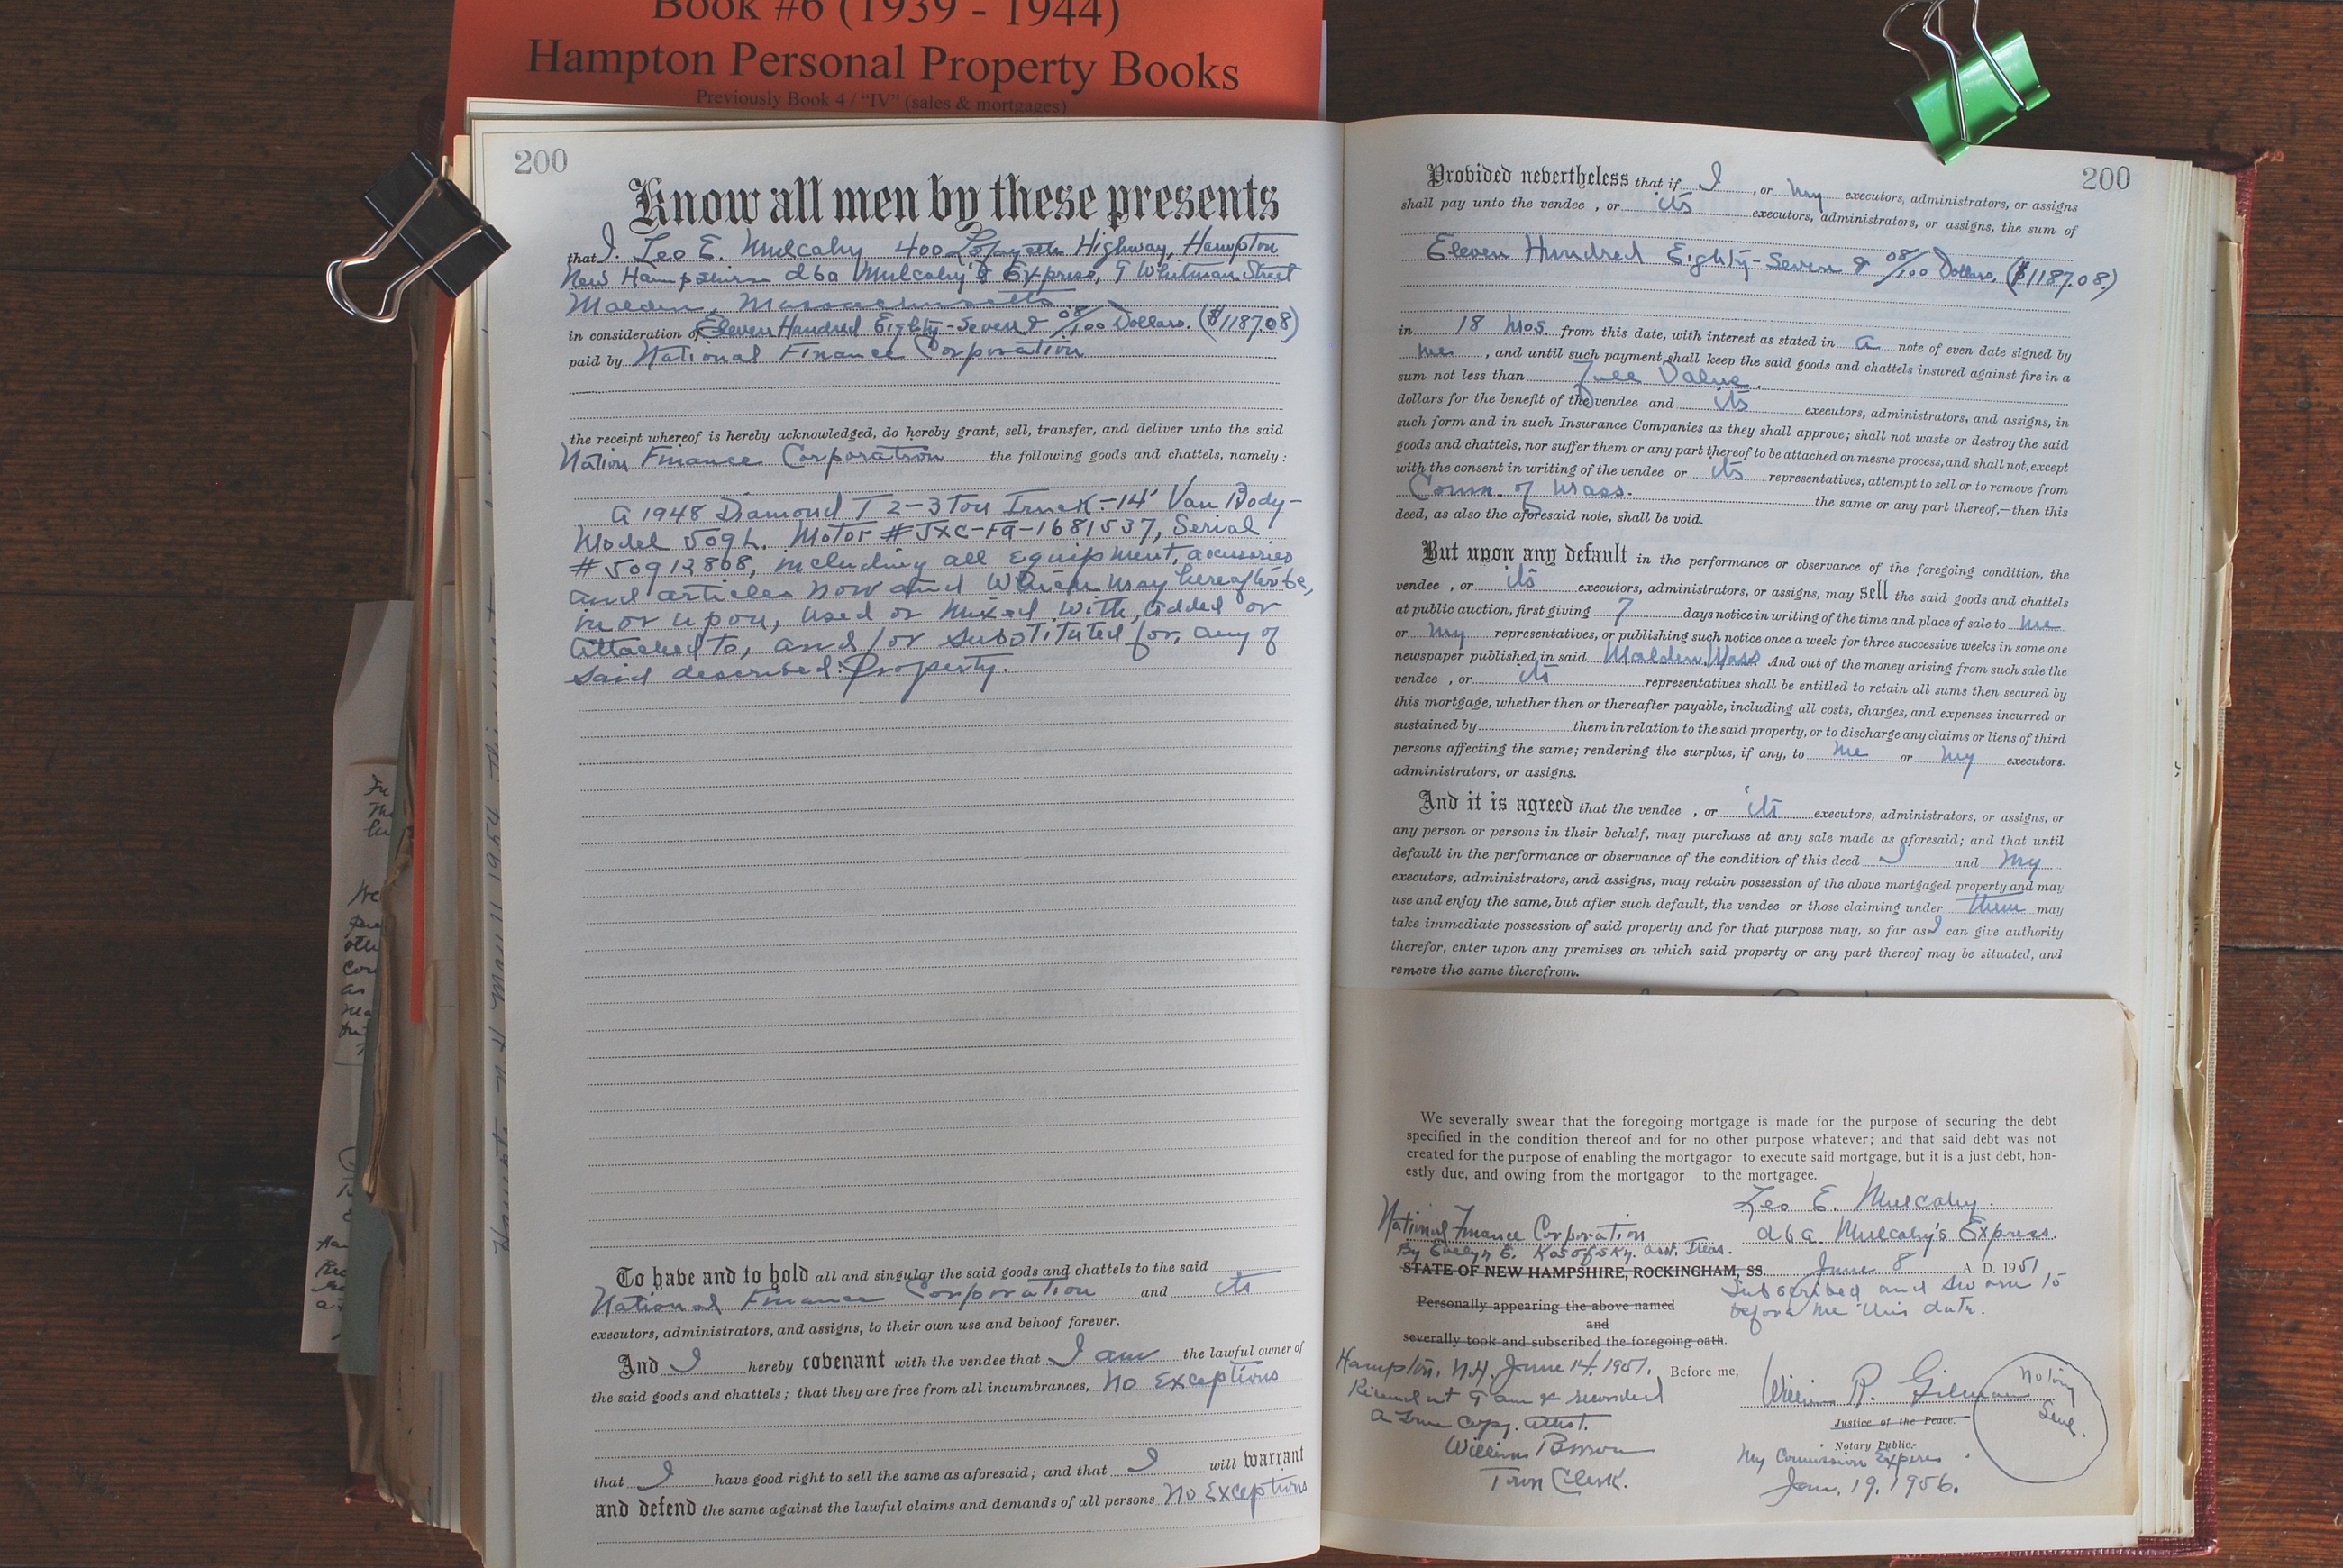 Book #6 (1939 - 1944)
Hampton Personal Property Books
Previously Book 4 / "IV" (sales & mortgages)
200
Know all men by these presents
that I. Leo E. Mulcahy 400 Lafayette Highway, Hampton
New Hampshire dba Mulcahy's Express, 9 Whitman Street
Malden, Massachusetts
in consideration of Eleven Hundred Eighty-Seven & 08/100 Dollars. ($1187.08)
paid by National Finance Corporation
the receipt whereof is hereby acknowledged, do hereby grant, sell, transfer, and deliver unto the said
Nation Finance Corporation the following goods and chattels, namely:
A 1948 Diamond T 2-3 Ton Truck-14' Van Body-
Model 509L. Motor #JXC-FA-1681537, Serial
#50912808, including all equipment, accessories
and articles now and which may hereafter be,
in or upon, used or mixed with, added or
attached to, and/or substituted for, any of
said described property.
To have and to hold all and singular the said goods and chattels to the said
National Finance Corporation and its
executors, administrators, and assigns, to their own use and behoof forever.
And I hereby covenant with the vendee that I am the lawful owner of
the said goods and chattels; that they are free from all incumbrances, No Exceptions
that I have good right to sell the same as aforesaid; and that I will warrant
and defend the same against the lawful claims and demands of all persons No Exceptions
200
Provided nevertheless that if I, or my executors, administrators, or assigns
shall pay unto the vendee , or its executors, administrators, or assigns, the sum of
Eleven Hundred Eighty-Seven & 08/100 Dollars. ($1187.08)
in 18 mos. from this date, with interest as stated in a note of even date signed by
me , and until such payment shall keep the said goods and chattels insured against fire in a
sum not less than Full Value.
dollars for the benefit of the vendee and its executors, administrators, and assigns, in
such form and in such Insurance Companies as they shall approve; shall not waste or destroy the said
goods and chattels, nor suffer them or any part thereof to be attached on mesne process, and shall not, except
with the consent in writing of the vendee or its representatives, attempt to sell or to remove from
Comm. of Mass. the same or any part thereof,—then this
deed, as also the aforesaid note, shall be void.
But upon any default in the performance or observance of the foregoing condition, the
vendee , or its executors, administrators, or assigns, may sell the said goods and chattels
at public auction, first giving 7 days notice in writing of the time and place of sale to me
or my representatives, or publishing such notice once a week for three successive weeks in some one
newspaper published in said Malden, Mass. And out of the money arising from such sale the
vendee , or its representatives shall be entitled to retain all sums then secured by
this mortgage, whether then or thereafter payable, including all costs, charges, and expenses incurred or
sustained by them in relation to the said property, or to discharge any claims or liens of third
persons affecting the same; rendering the surplus, if any, to me or my executors.
administrators, or assigns.
And it is agreed that the vendee , or its executors, administrators, or assigns, or
any person or persons in their behalf, may purchase at any sale made as aforesaid; and that until
default in the performance or observance of the condition of this deed I and my
executors, administrators, and assigns, may retain possession of the above mortgaged property and may
use and enjoy the same, but after such default, the vendee or those claiming under them may
take immediate possession of said property and for that purpose may, so far as I can give authority
therefor, enter upon any premises on which said property or any part thereof may be situated, and
remove the same therefrom.
We severally swear that the foregoing mortgage is made for the purpose of securing the debt
specified in the condition thereof and for no other purpose whatever; and that said debt was not
created for the purpose of enabling the mortgagor to execute said mortgage, but it is a just debt, hon-
estly due, and owing from the mortgagor to the mortgagee.
Leo E. Mulcahy.
National Finance Corporation dba. Mulcahy's Express.
By Evelyn E. Kosofsky. asst. Treas.
STATE OF NEW HAMPSHIRE, ROCKINGHAM, SS. June 8 A. D. 1951
Subscribed and sworn to
Personally appearing the above named before me this date.
and
severally took and subscribed the foregoing oath.
Hampton, N.H. June 14, 1951. Before me, William R. Gilman
Received at 9 am & recorded
A true copy. attest. Justice of the Peace.
William Brown Notary Public.
Town Clerk. My Commission Expires
Jan. 19, 1956.
Notary
Seal.